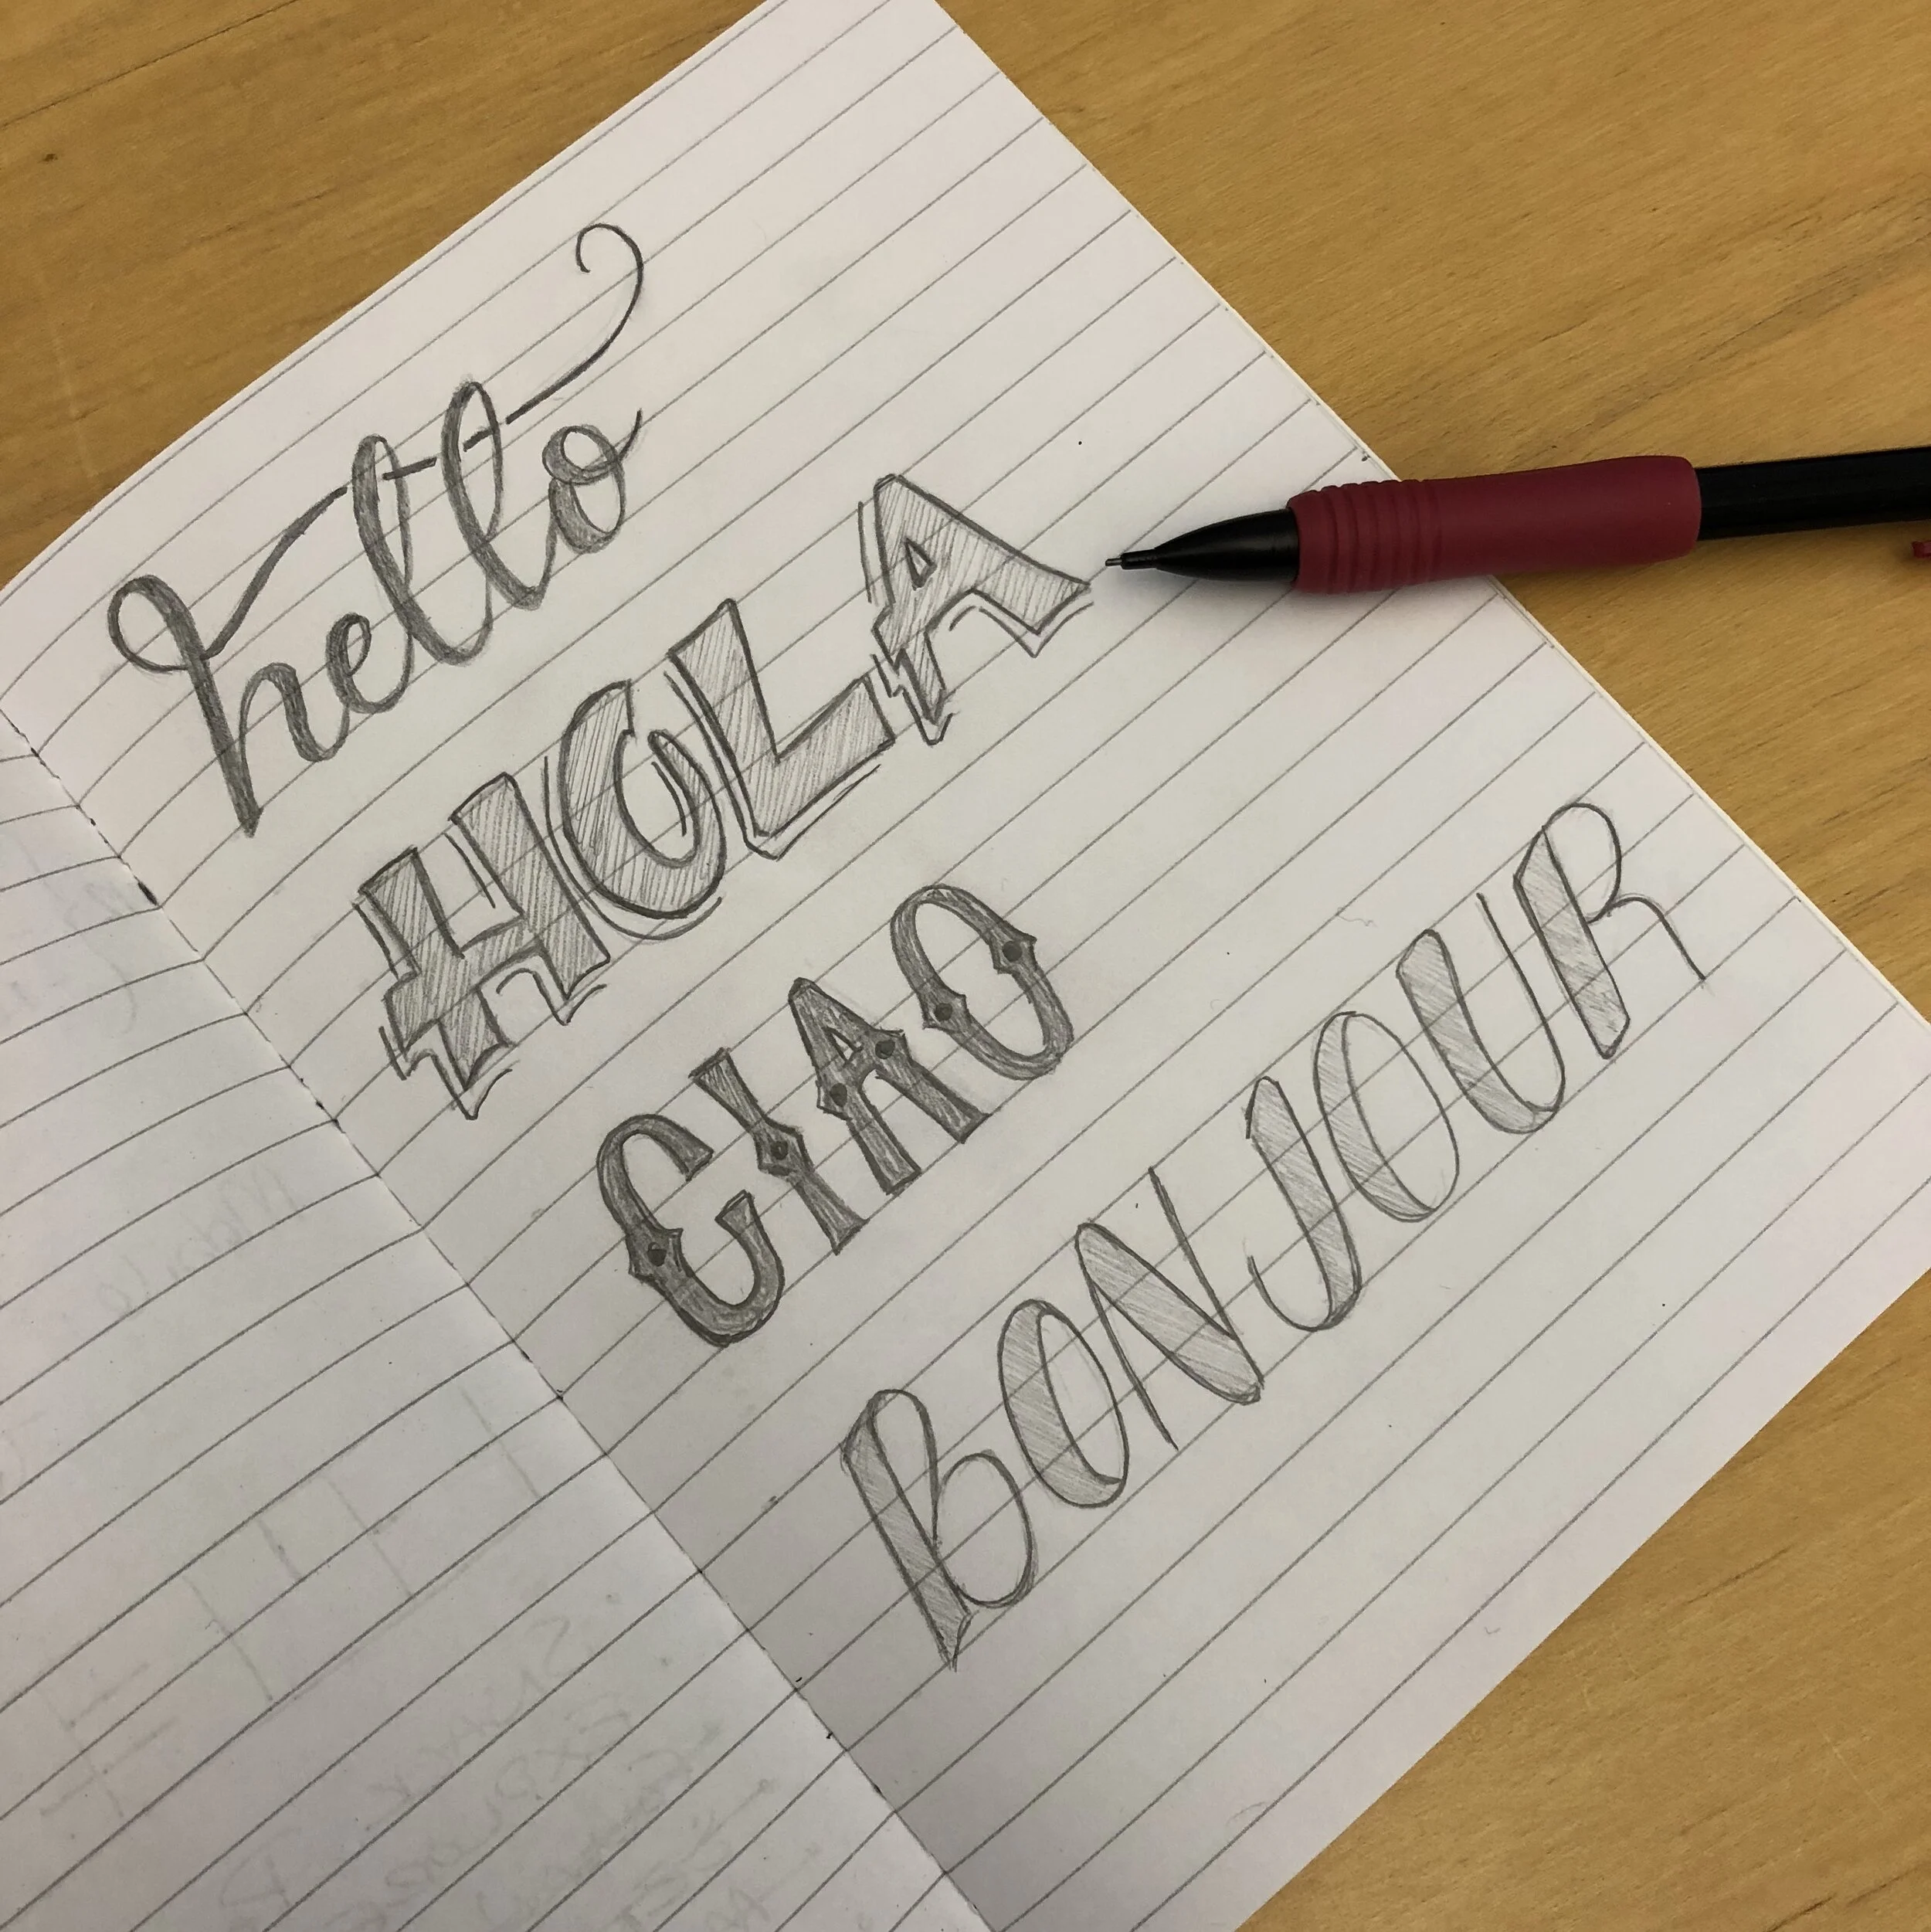 hello
HOLA
CIAO
BONJOUR